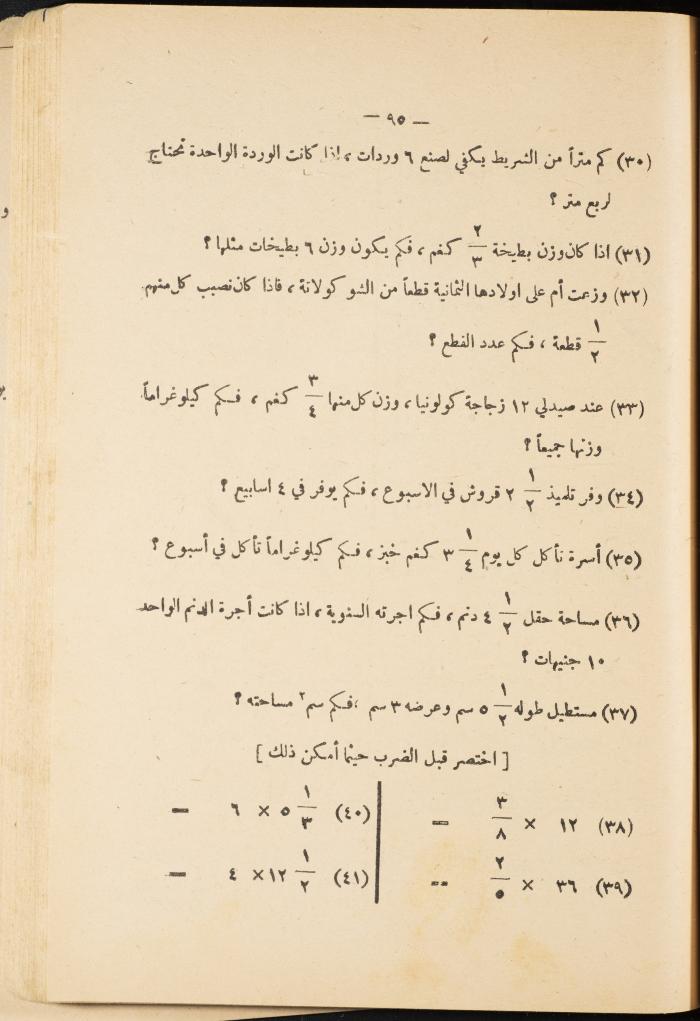 — ٩٥ —
(٣٠) كم متراً من الشريط يكفي لصنع ٦ وردات ، اذا كانت الوردة الواحدة تحتاج
لربع متر ؟
(٣١) اذا كان وزن بطيخة ٢/٣ كغم ، فكم يكون وزن ٦ بطيخات مثلها ؟
(٣٢) وزعت أم على اولادها الثمانية قطعاً من الشوكولاتة ، فاذا كان نصيب كل منهم
١/٢ قطعة ، فكم عدد القطع ؟
(٣٣) عند صيدلي ١٢ زجاجة كولونيا ، وزن كل منها ٣/٤ كغم ، فكم كيلوغراماً
وزنها جميعاً ؟
(٣٤) وفر تلميذ ١/٢ ٢ قروش في الاسبوع ، فكم يوفر في ٤ اسابيع ؟
(٣٥) أسرة تأكل كل يوم ١/٤ ٣ كغم خبز ، فكم كيلوغراماً تأكل في أسبوع ؟
(٣٦) مساحة حقل ١/٢ ٤ دنم ، فكم اجرته السنوية ، اذا كانت أجرة الدنم الواحد
١٠ جنيهات ؟
(٣٧) مستطيل طوله ١/٢ ٥ سم وعرضه ٣ سم ، فكم سم٢ مساحته ؟
[ اختصر قبل الضرب حيثما أمكن ذلك ]
(٣٨) ١٢ × ٣/٨ =
(٣٩) ٣٦ × ٢/٥ =
(٤٠) ١/٣ ٥ × ٦ =
(٤١) ١/٢ ١٢ × ٤ =